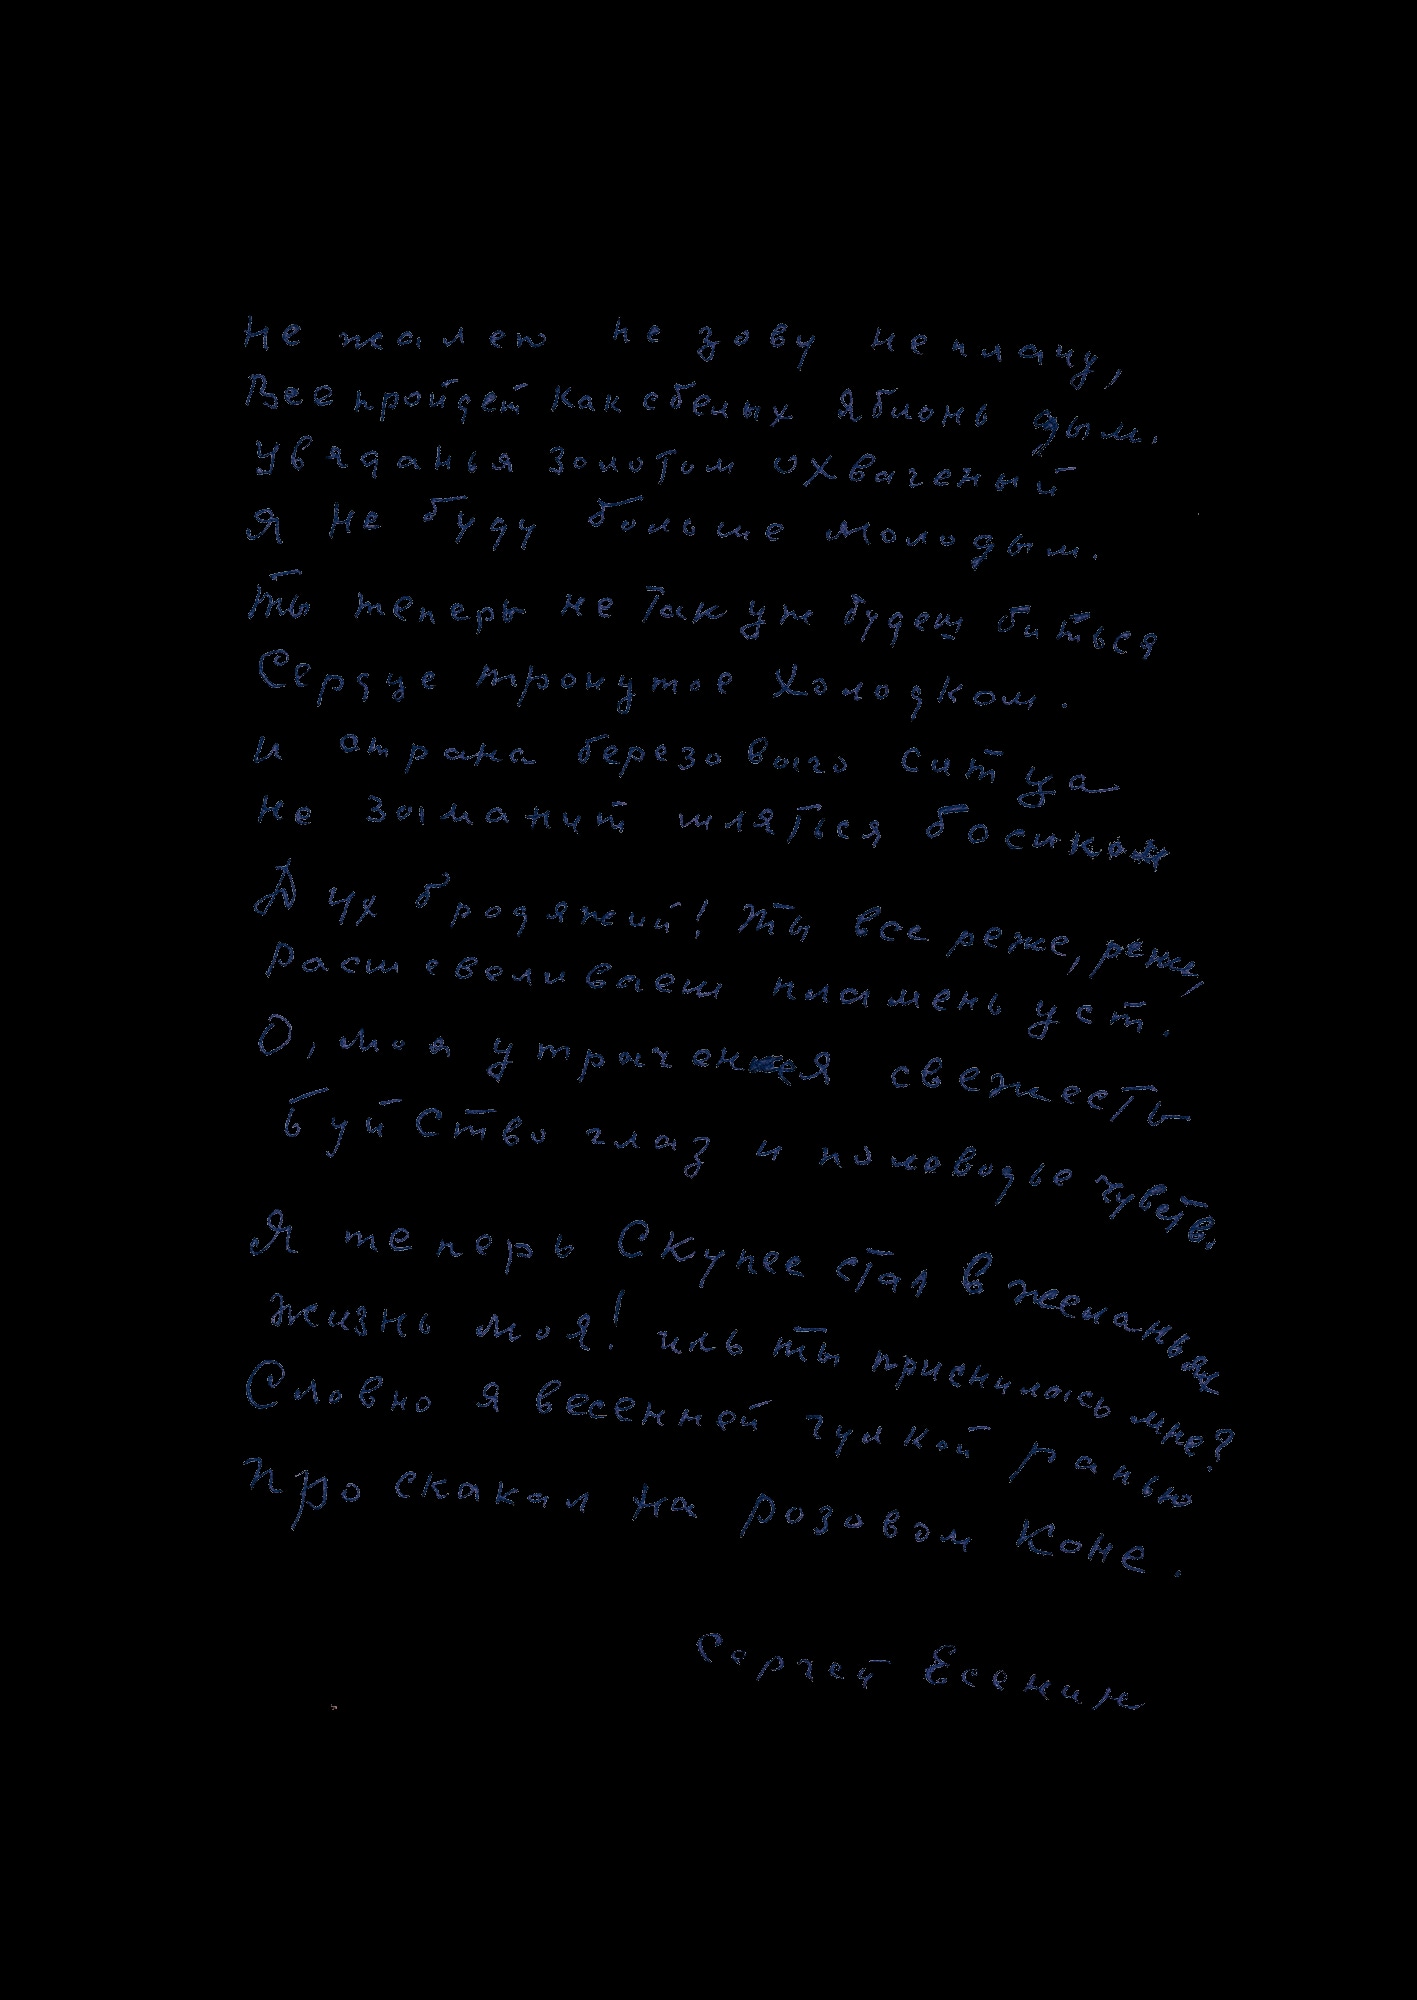 не жалею не зову не плачу,
Все пройдет как с белых яблонь дым.
Увяданья золотом охваченый
я не буду больше молодым.
Ты теперь не так уж будеш биться
Сердце тронутое холодком.
и страна березового ситца
не заманит шляться босиком
Дух бродяжий! ты все реже, реже,
расшевеливаеш пламень уст.
О, моя утраченная свежесть
Буйство глаз и половодье чувств.
Я теперь Скупее стал в желаньях
жизнь моя! иль ты приснилась мне?
Словно я весенней гулкой ранью
проскакал на розовом коне.
Сергей Есенин